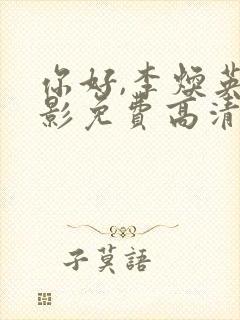 你好,李焕英
影免费高清
子莫語